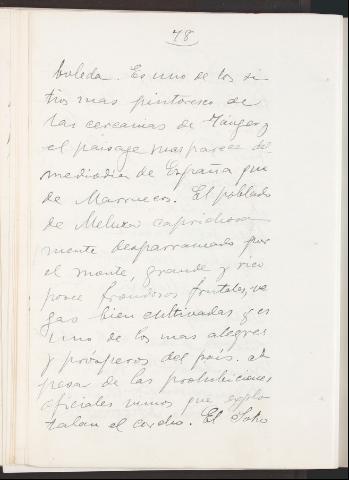 78
boleda. Es uno de los si-
tios mas pintorescos de
las cercanias de Tánger y
el paisage mas parece de
mediodia de España que
de Marruecos. El poblado
de Melusa caprichosa-
mente desparramado por
el monte, grande y rico
posee frondosos frutales, ve-
gas bien cultivadas y es
uno de los mas alegres
y prósperos del país. A
pesar de las prohibiciones
oficiales vimos que explo-
taban el corcho. El Soko